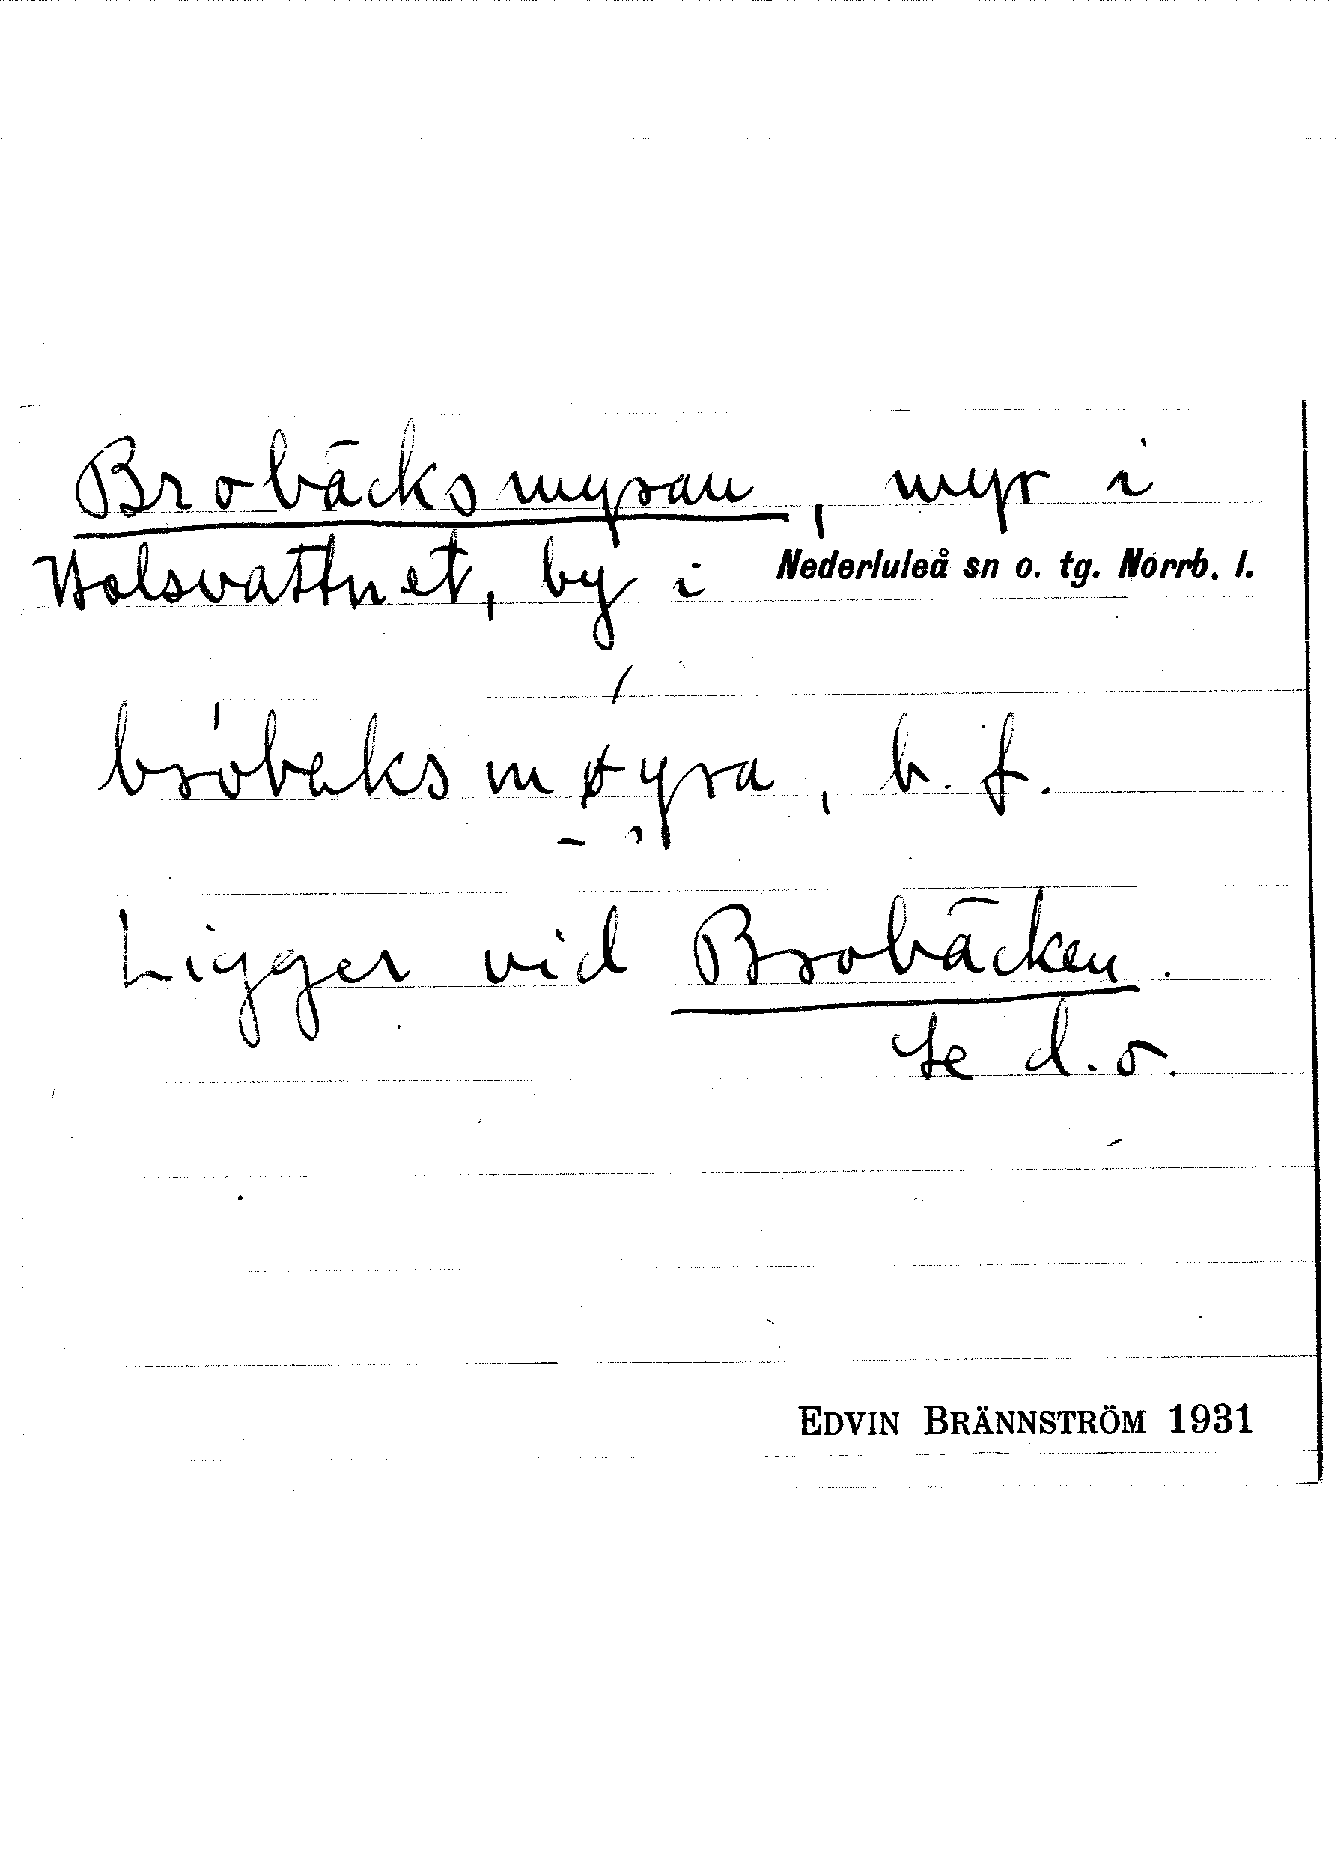 Brobäcksmyran, myr i
Holsvattnet, by i Nederluleå sn o. tg. Norrb. l.
bro̍baksmøyra, b. f.
Ligger vid Brobäcken.
Se d. o.
EDVIN BRÄNNSTRÖM 1931